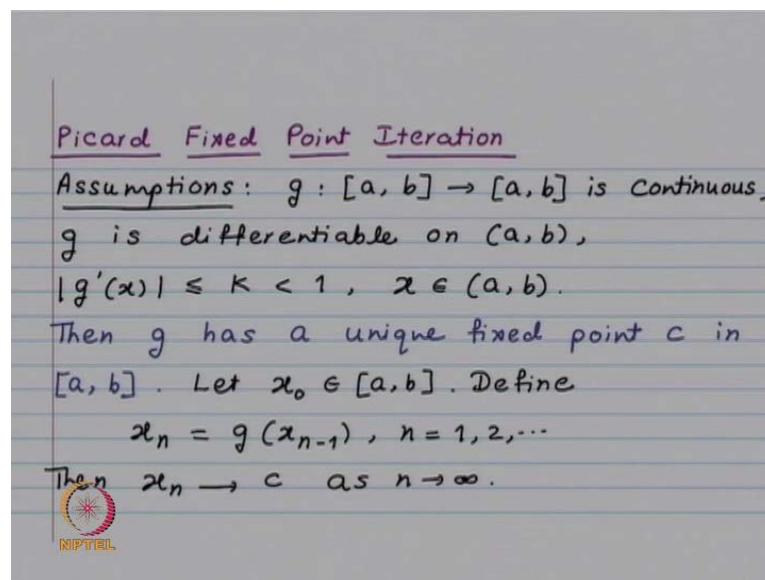 Picard Fixed Point Iteration
Assumptions: g : [a, b] → [a, b] is continuous,
g is differentiable on (a, b),
|g'(x)| ≤ K < 1, x ∈ (a, b).
Then g has a unique fixed point c in
[a, b]. Let x₀ ∈ [a, b]. Define
xₙ = g(xₙ₋₁), n = 1, 2, ⋯
Then xₙ → c as n → ∞.
NPTEL